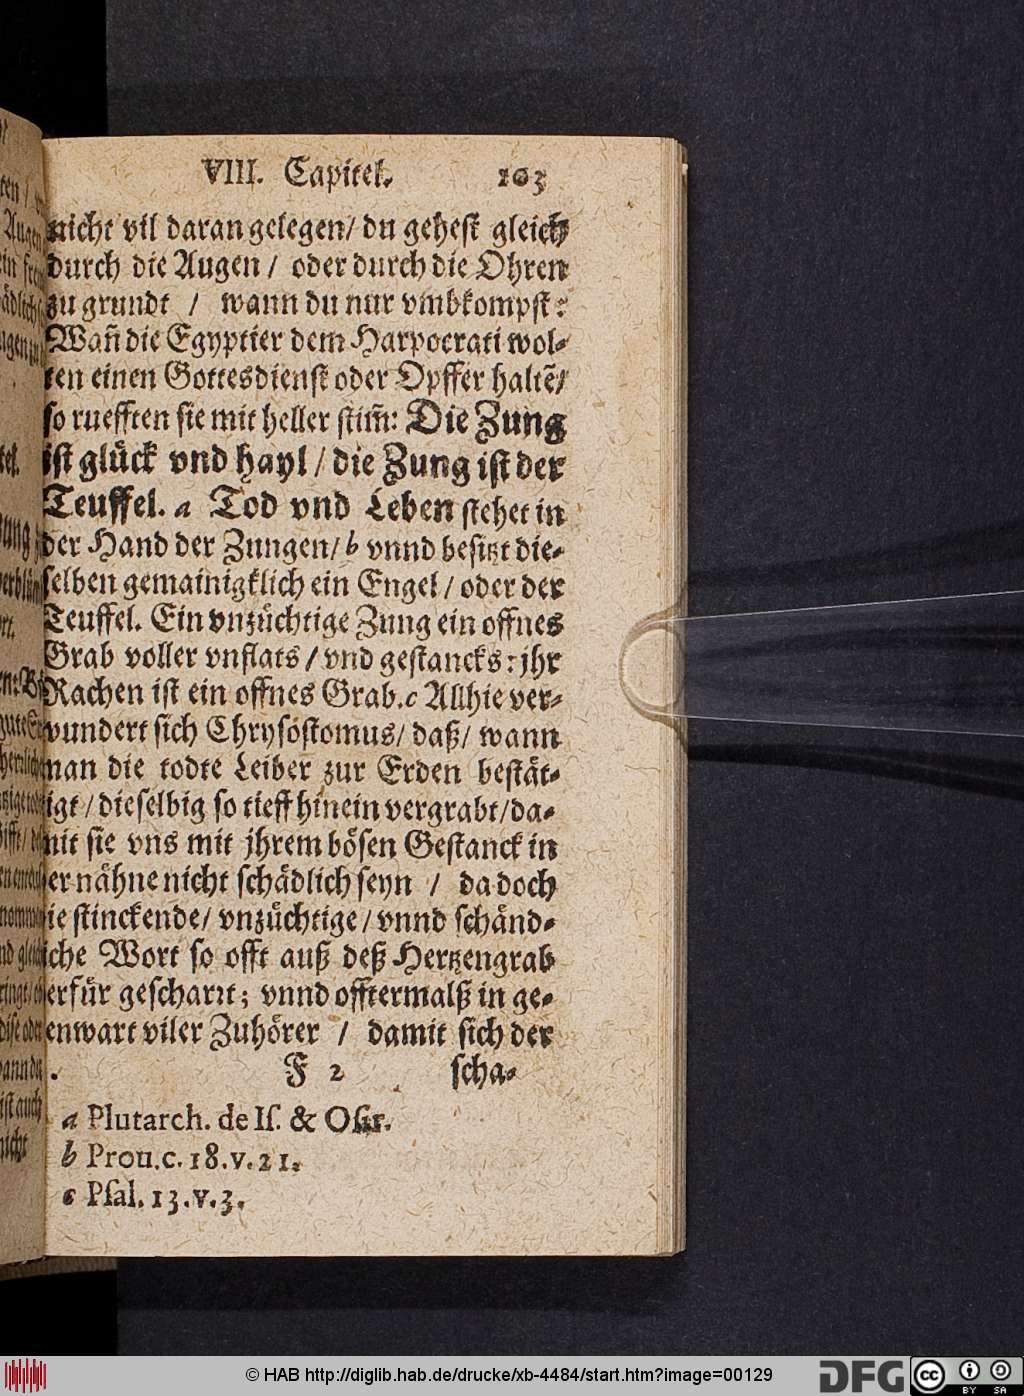 VIII. Capitel. 103
nicht vil daran gelegen/ du gehest gleich
durch die Augen / oder durch die Ohren
zu grundt / wann du nur vmbkompst:
Wañ die Egyptier dem Harpocrati wol-
ten einen Gottesdienst oder Opffer haltẽ/
so ruefften sie mit heller stim̃: Die Zung
ist glück vnd hayl / die Zung ist der
Teuffel. a Tod vnd Leben stehet in
der Hand der Zungen/ b vnnd besitzt die-
selben gemainigklich ein Engel / oder der
Teuffel. Ein vnzüchtige Zung ein offnes
Grab voller vnflats / vnd gestancks: jhr
Rachen ist ein offnes Grab. c Allhie ver-
wundert sich Chrysostomus/ daß/ wann
man die todte Leiber zur Erden bestät-
igt / dieselbig so tieff hinein vergrabt/ da-
mit sie vns mit jhrem bösen Gestanck in
er nähne nicht schädlich seyn / da doch
ie stinckende/ vnzüchtige / vnnd schänd-
iche Wort so offt auß deß Hertzengrab
erfür gescharꝛt; vnnd offtermalß in ge-
enwart viler Zuhörer / damit sich der
F 2 scha-
a Plutarch. de Iſ. & Oſir.
b Prou. c. 18. v. 21.
c Pſal. 13. v. 3.
© HAB http://diglib.hab.de/drucke/xb-4484/start.htm?image=00129
DFG
cc BY SA